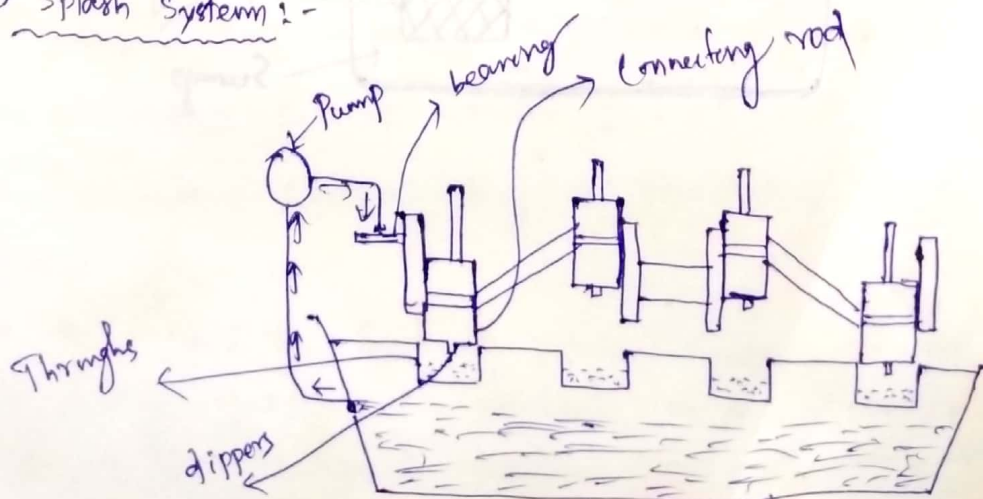 Splash System :-
Pump
bearing
Connecting rod
Thrnghs
dippers